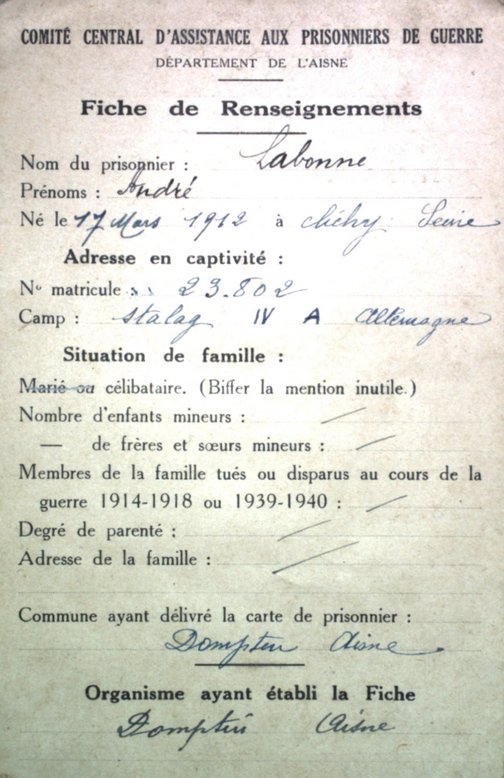 COMITÉ CENTRAL D'ASSISTANCE AUX PRISONNIERS DE GUERRE
DÉPARTEMENT DE L'AISNE
Fiche de Renseignements
Nom du prisonnier : Labonne
Prénoms : André
Né le 17 Mars 1912 à Clichy Seine
Adresse en captivité :
N° matricule 23.802
Camp : Stalag IV A Allemagne
Situation de famille :
Marié ou célibataire. (Biffer la mention inutile.)
Nombre d'enfants mineurs : /
— de frères et sœurs mineurs : /
Membres de la famille tués ou disparus au cours de la
guerre 1914-1918 ou 1939-1940 : /
Degré de parenté : /
Adresse de la famille : /
Commune ayant délivré la carte de prisonnier :
Domptin Aisne
Organisme ayant établi la Fiche
Domptin Aisne